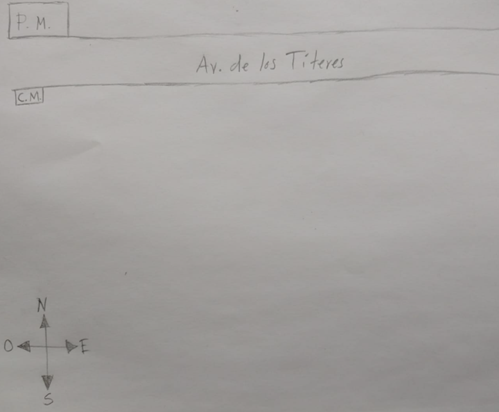 P.M.
Av. de los Títeres
C.M.
N
O E
S